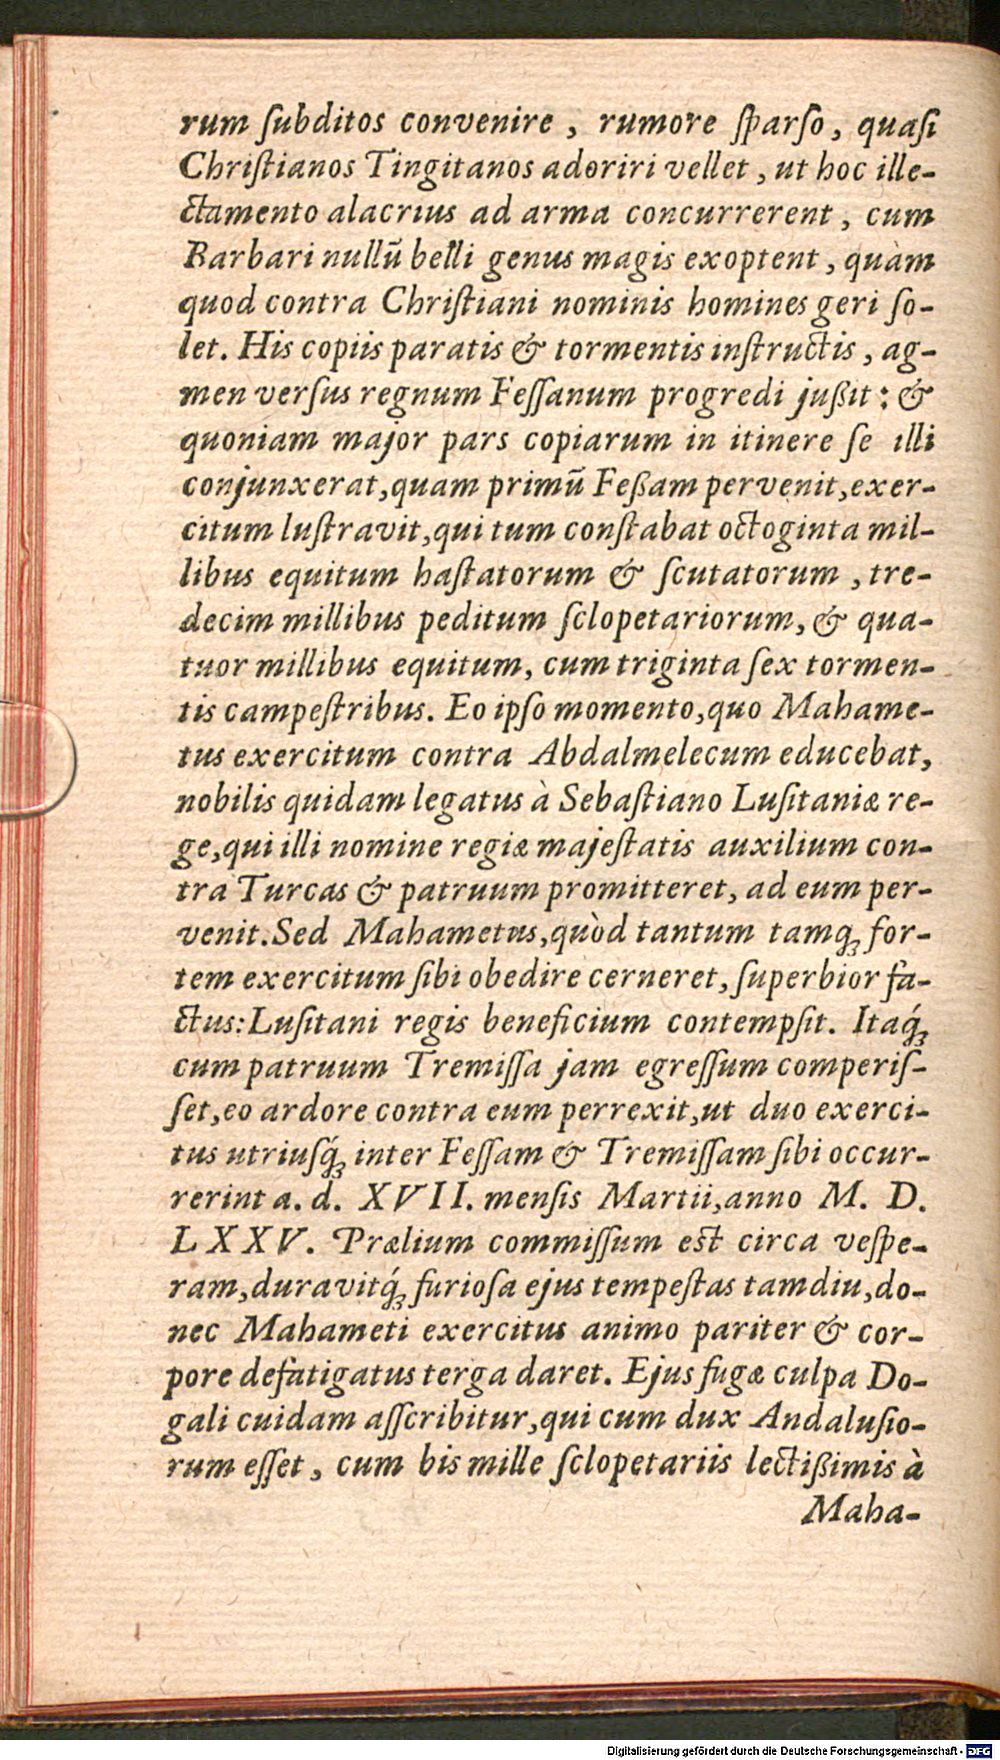 rum ſubditos convenire , rumore ſparſo, quaſi
Chriſtianos Tingitanos adoriri vellet , ut hoc ille-
ctamento alacrius ad arma concurrerent , cum
Barbari nullũ belli genus magis exoptent , quàm
quod contra Chriſtiani nominis homines geri ſo-
let. His copiis paratis & tormentis inſtructis , ag-
men verſus regnum Feſſanum progredi jußit : &
quoniam major pars copiarum in itinere ſe illi
conjunxerat,quam primũ Feßam pervenit,exer-
citum luſtravit,qui tum conſtabat octoginta mil-
libus equitum haſtatorum & ſcutatorum , tre-
decim millibus peditum ſclopetariorum, & qua-
tuor millibus equitum, cum triginta ſex tormen-
tis campeſtribus. Eo ipſo momento,quo Mahame-
tus exercitum contra Abdalmelecum educebat,
nobilis quidam legatus à Sebaſtiano Luſitaniæ re-
ge,qui illi nomine regiæ majeſtatis auxilium con-
tra Turcas & patruum promitteret, ad eum per-
venit.Sed Mahametus,quòd tantum tamq́; for-
tem exercitum ſibi obedire cerneret, ſuperbior fa-
ctus:Luſitani regis beneficium contempſit. Itaq́;
cum patruum Tremiſſa jam egreſſum comperiſ-
ſet,eo ardore contra eum perrexit,ut duo exerci-
tus utriuſq́; inter Feſſam & Tremiſſam ſibi occur-
rerint a. d. XVII. menſis Martii,anno M. D.
LXXV. Prælium commiſſum eſt circa veſpe-
ram,duravitq́; furioſa ejus tempeſtas tamdiu,do-
nec Mahameti exercitus animo pariter & cor-
pore defatigatus terga daret. Ejus fugæ culpa Do-
gali cuidam aſſcribitur,qui cum dux Andaluſio-
rum eſſet , cum bis mille ſclopetariis lectißimis à
Maha-
Digitalisierung gefördert durch die Deutsche Forschungsgemeinschaft - DFG